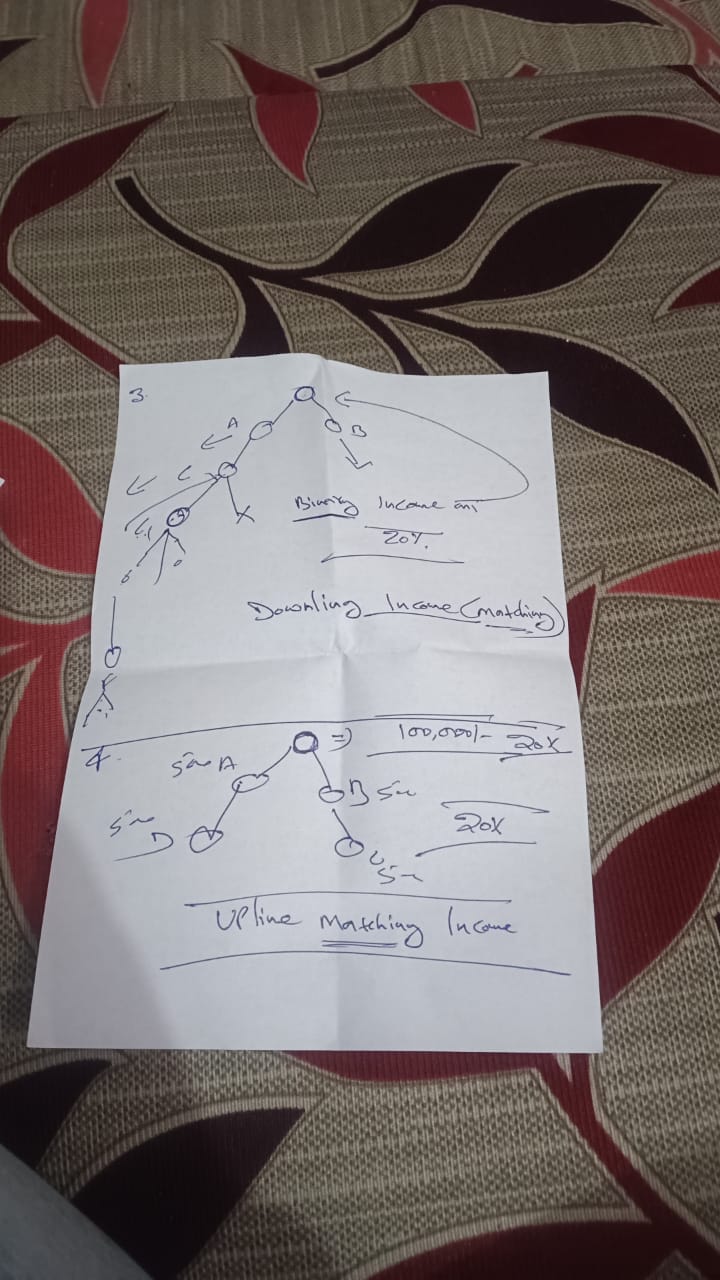 3.
A
B
Binary Income on
20%.
Downling Income (Matching)
4.
100,000/- 20%
A
B
20%
D
C
UPline Matching Income